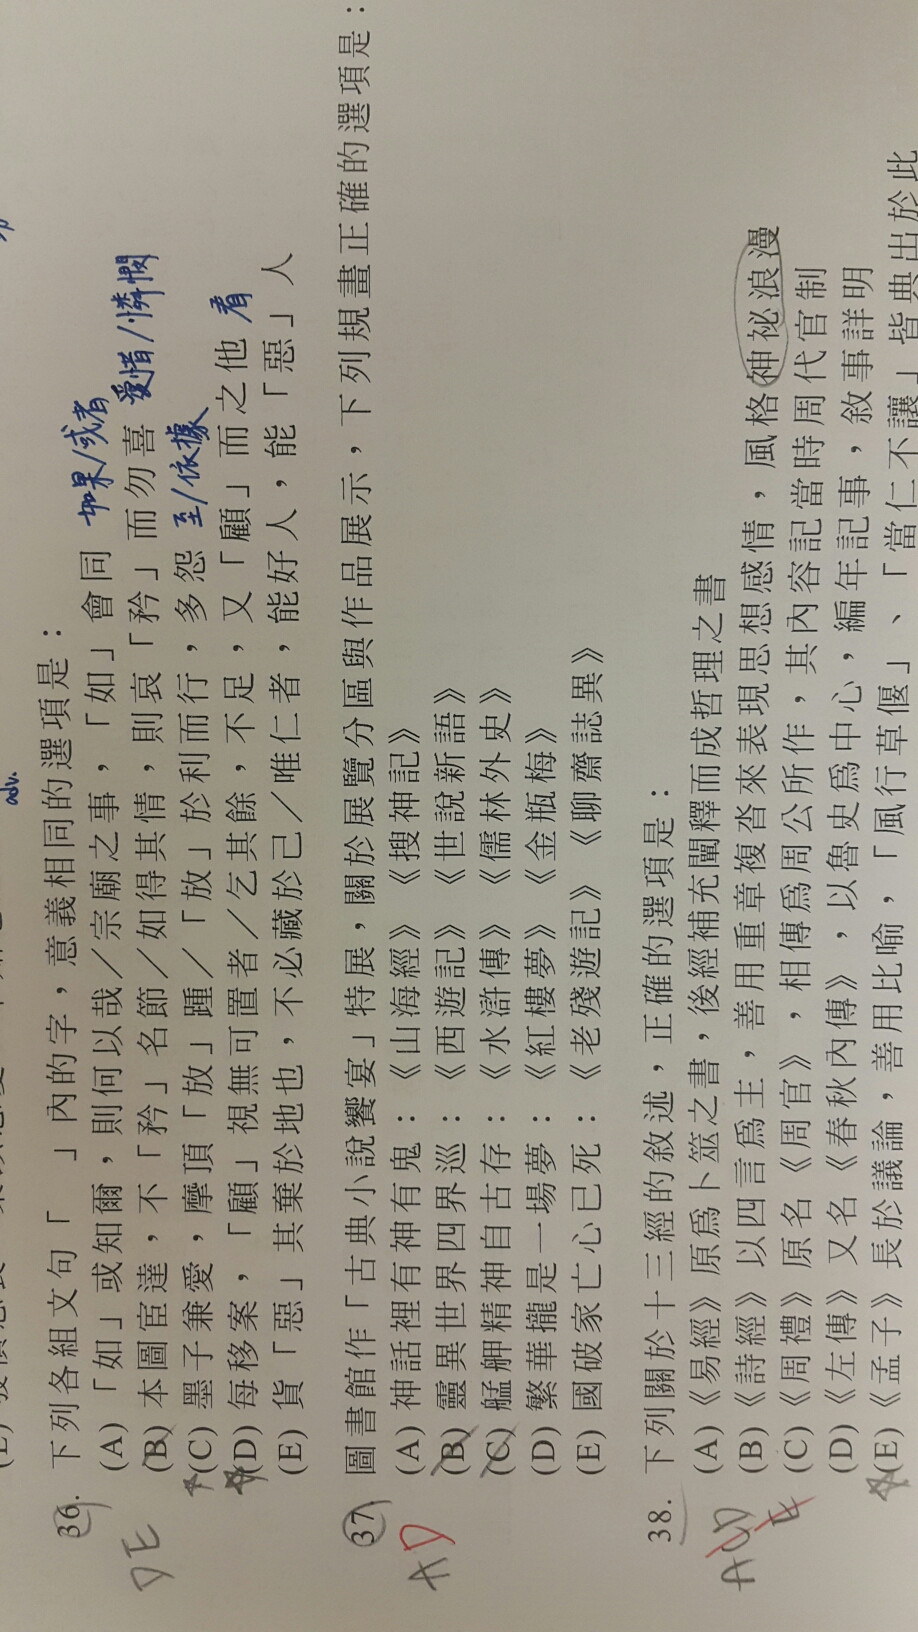 adv.
36. 下列各組文句「　」內的字，意義相同的選項是：
(A)「如」或知爾，則何以哉／宗廟之事，「如」會同 如果/或者
(B) 本圖宦達，不「矜」名節／如得其情，則哀「矜」而勿喜 愛惜/憐憫
(C) 墨子兼愛，摩頂「放」踵／「放」於利而行，多怨 至/依據
(D) 每移案，「顧」視無可置者／乞其餘，不足，又「顧」而之他 看
(E) 貨「惡」其棄於地也，不必藏於己／唯仁者，能好人，能「惡」人
DE
37. 圖書館作「古典小說饗宴」特展，關於展覽分區與作品展示，下列規畫正確的選項是：
(A) 神話裡有神有鬼：《山海經》《搜神記》
(B) 靈異世界四界巡：《西遊記》《世說新語》
(C) 艋舺精神自古存：《水滸傳》《儒林外史》
(D) 繁華攏是一場夢：《紅樓夢》《金瓶梅》
(E) 國破家亡心已死：《老殘遊記》《聊齋誌異》
AD
38. 下列關於十三經的敘述，正確的選項是：
(A)《易經》原為卜筮之書，後經補充闡釋而成哲理之書
(B)《詩經》以四言為主，善用重章複沓來表現思想感情，風格神祕浪漫
(C)《周禮》原名《周官》，相傳為周公所作，其內容記當時周代官制
(D)《左傳》又名《春秋內傳》，以魯史為中心，編年記事，敘事詳明
(E)《孟子》長於議論，善用比喻，「風行草偃」、「當仁不讓」皆典出於此
ACD
E